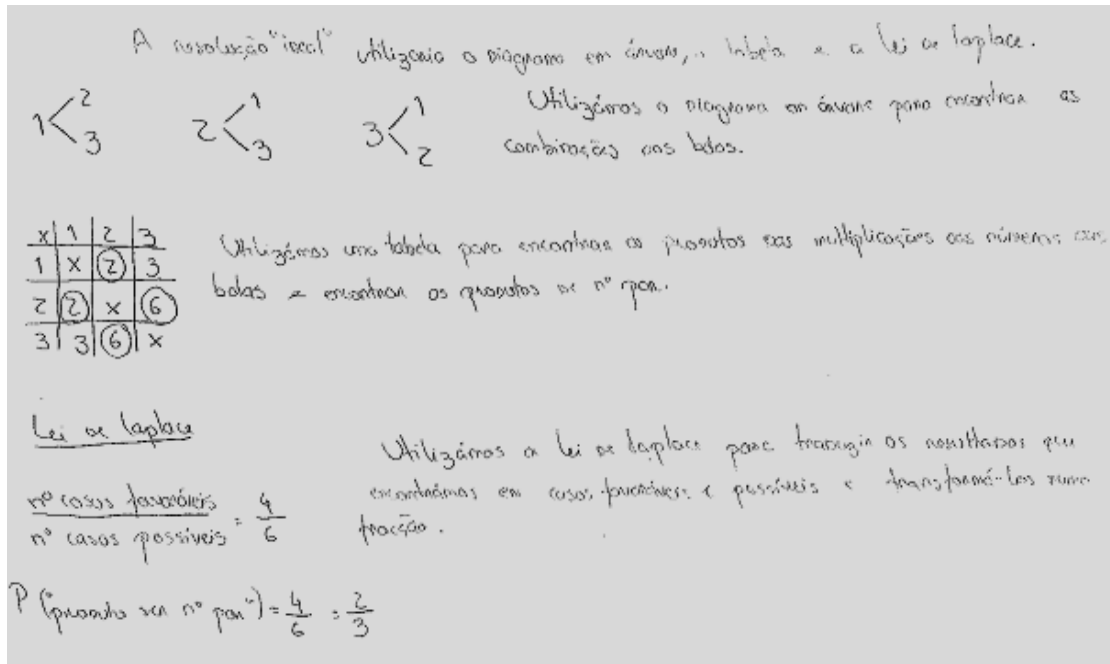 A resolução "ideal" utilizaria o diagrama em árvore, a tabela e a lei de laplace.
1 2 3
2 1 3
3 1 2
Utilizámos o diagrama em árvore para encontrar as
combinações das bolas.
x 1 2 3
1 x 2 3
2 2 x 6
3 3 6 x
Utilizámos uma tabela para encontrar os produtos das multiplicações dos números das
bolas e encontrar os produtos de nº par.
Lei de laplace
nº casos favoráveis
nº casos possíveis
= 4/6
Utilizámos a lei de laplace para os resultados que
encontrámos em casos favoráveis e possíveis e transformá-los numa
fracção.
P ("produto ser nº par") = 4/6 = 2/3